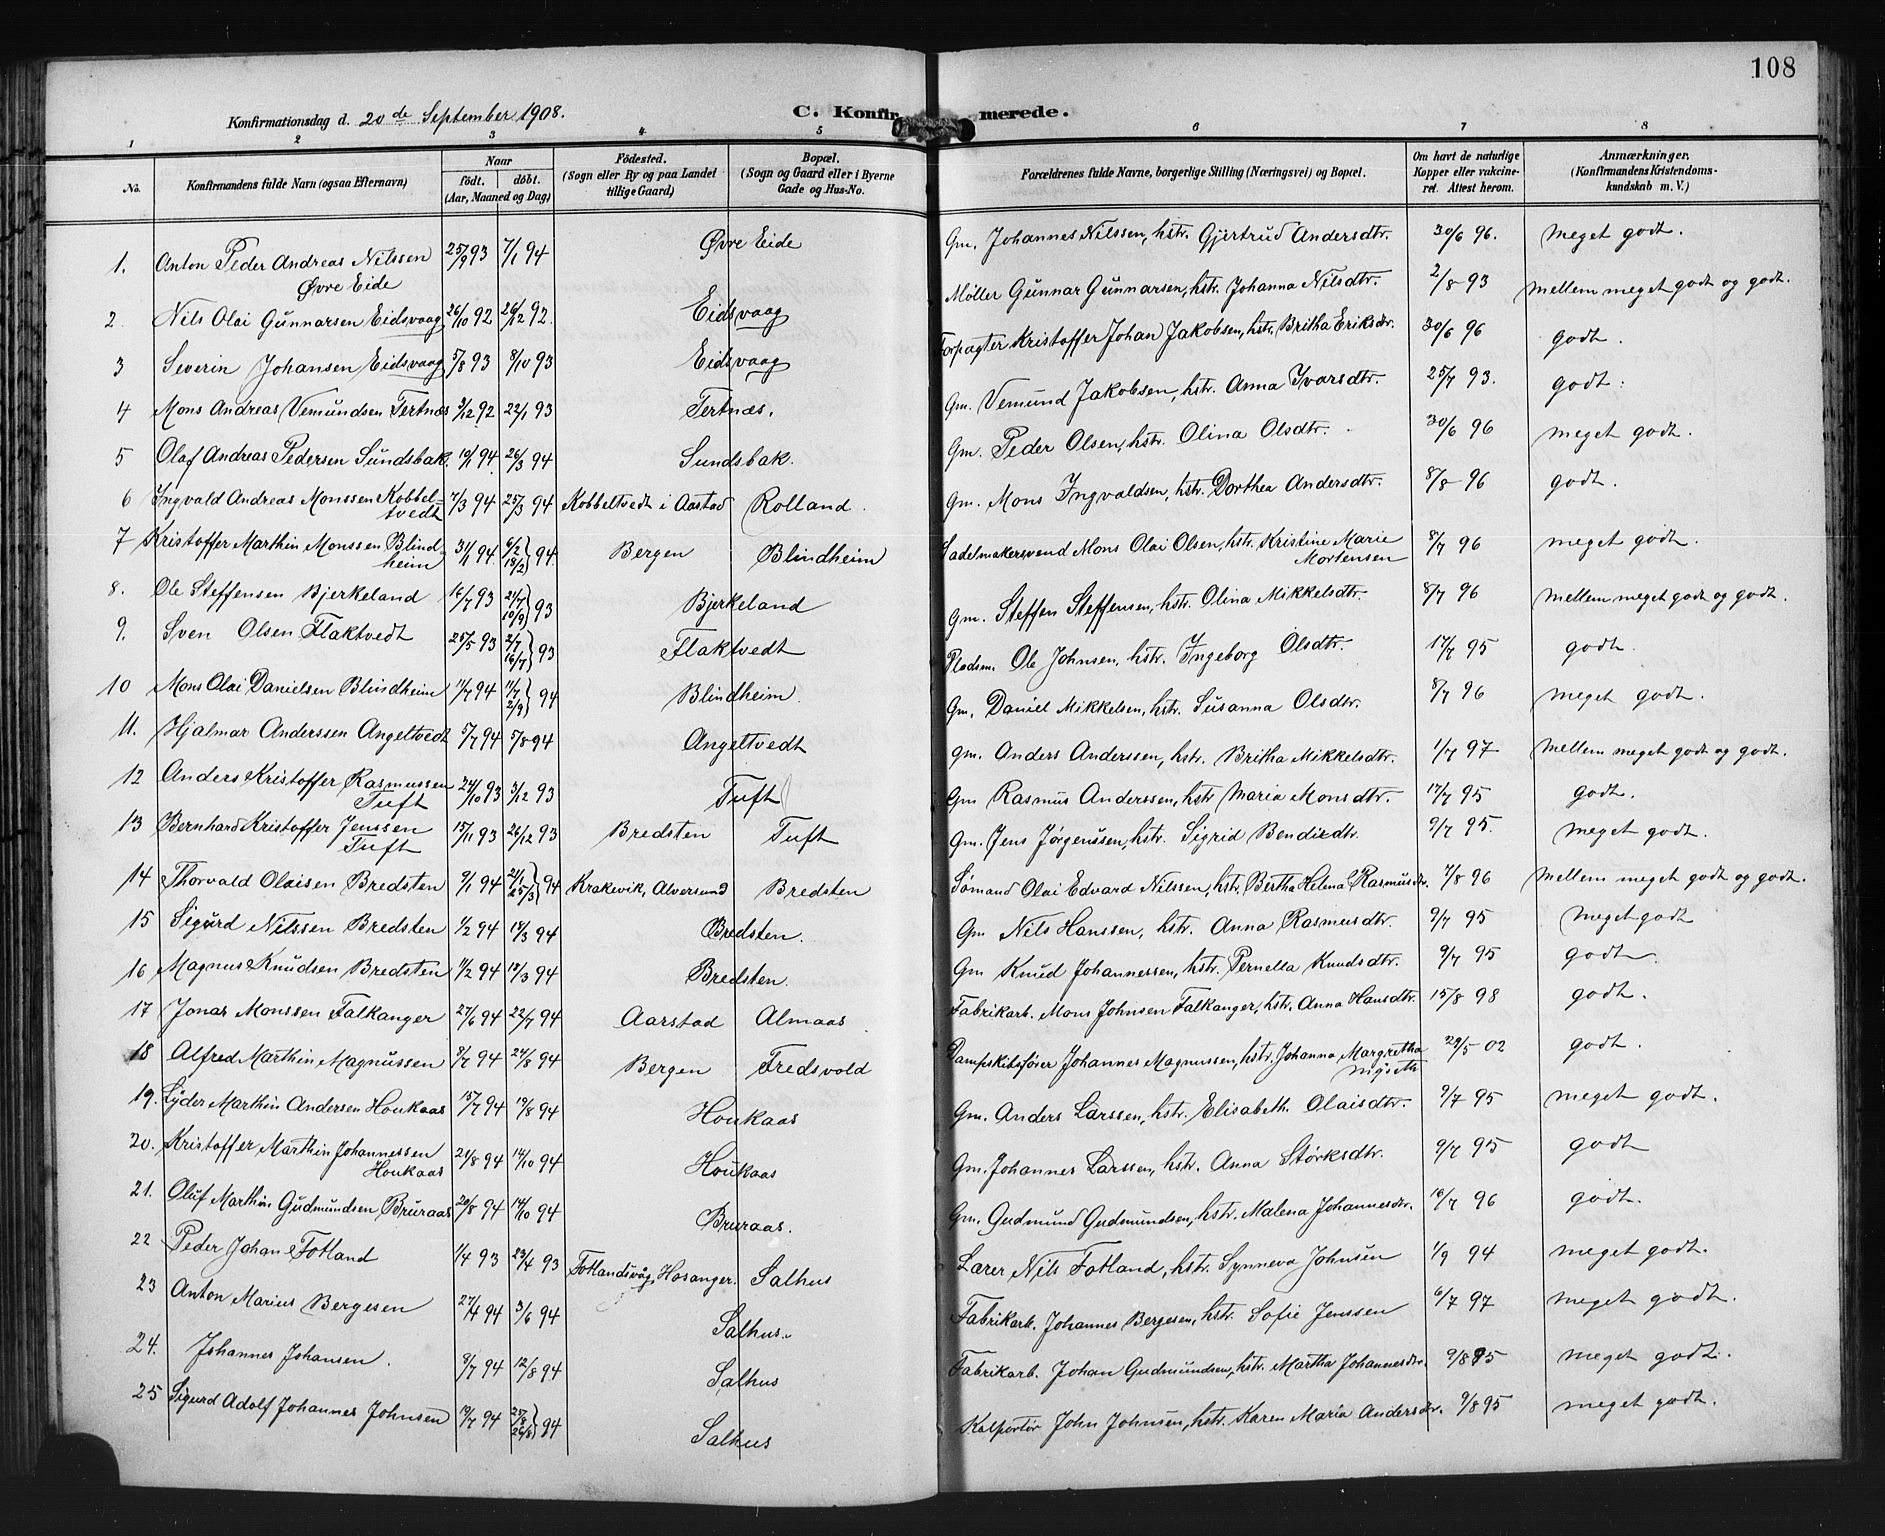 108
Konfirmationsdag d. 20de September 1908.
C. Konfirmerede.
1 2 3 4 5 6 7 8
No.
Konfirmandens fulde Navn (ogsaa Efternavn)
Naar
födt. döbt.
(Aar, Maaned og Dag)
Födested.
(Sogn eller By og paa Landet
tillige Gaard)
Bopæl.
(Sogn og Gaard eller i Byerne
Gade og Hus-No.
Forældrenes fulde Navne, borgerlige Stilling (Næringsvei) og Bopæl.
Om havt de naturlige
Kopper eller vakcine-
ret. Attest herom.
Anmærkninger.
(Konfirmandens Kristendoms-
kundskab m. V.)
1. Anton Peder Andreas Nilssen 25/9 93 7/1 94 Øvre Eide Gm. Johannes Nilssen, hstr. Gjertrud Andersdtr. 30/6 96. meget godt.
Øvre Eide
2. Nils Olai Gunnarsen Eidsvaag 26/10 92 26/12 92. Eidsvaag Møller Gunnar Gunnarsen, hstr. Johanna Nilsdtr. 2/8 93 mellem meget godt og godt.
3 Severin Johansen Eidsvaag 5/8 93 8/10 93 Eidsvaag Forpagter Kristoffer Johan Jakobsen, hstr. Britha Eriksdtr. 30/6 96 godt.
4 Mons Andreas Vemundsen Tertnæs 3/12 92 22/1 93 Tertnæs. Gm. Vemund Jakobsen, hstr. Anna Ivarsdtr. 25/7 93. godt.
5 Olaf Andreas Pedersen Sundsbak. 10/1 94. 26/3 94 Sundsbak. Gm. Peder Olsen, hstr. Olina Olsdtr. 30/6 96 meget godt.
6 Ingvald Andreas Monssen Kobbel-
tvedt 7/3 94 25/3 94 Kobbeltvedt i Aastad Rolland. Gm. Mons Ingvaldsen, hstr. Dorthea Andersdtr. 8/8 96 godt.
7 Kristoffer Marthin Monssen Blind-
heim 31/1 94. 6/2 18/2} 94. Bergen Blindheim Sadelmakersvend Mons Olai Olsen, hstr. Kristine Marie 8/7 96 meget godt.
Mortensen
8. Ole Steffensen Bjerkeland 16/7 93 21/7 10/9} 93 Bjerkeland Gm. Steffen Steffensen, hstr. Olina Mikkelsdtr. 8/7 96 mellem meget godt og godt.
9. Sven Olsen Flaktvedt 25/5 93 2/7 16/7} 93 Flaktvedt Pladsm. Ole Johnsen, hstr. Ingeborg Olsdtr. 17/7 95 godt.
10 Mons Olai Danielsen Blindheim 11/7 94 11/7 2/9} 94 Blindheim. Gm. Daniel Mikkelsen, hstr. Susanna Olsdtr. 8/7 96 meget godt.
11. Hjalmar Anderssen Angeltvedt 5/7 94 5/8 94 Angeltvedt Gm. Anders Anderssen, hstr. Britha Mikkelsdtr. 1/7 97 mellem meget godt og godt.
12 Anders Kristoffer Rasmussen 24/10 93 3/12 93 Tuft Gm Rasmus Anderssen, hstr Maria Monsdtr. 17/7 95 godt.
Tuft
13 Bernhard Kristoffer Jenssen 15/11 93 26/12 93 Bredsten Tuft Gm. Jens Jørgenssen, hstr. Sigrid Bendicdtr. 9/7 95. meget godt.
Tuft
14 Thorvald Olaisen Bredsten 9/1 94 21/1 25/3} 94 Krakevik, Alversund Bredsten Sømand Olai Edvard Nilssen, hstr. Bertha Helena Rasmusdtr. 7/8 96 mellem meget godt og godt.
15 Sigurd Nilssen Bredsten 1/2 94 18/3 94 Bredsten. Gm Nils Hanssen, hstr. Anna Rasmusdtr. 9/7 95 meget godt
16 Magnus Knudsen Bredsten 11/2 94 18/3 94 Bredsten. Gm Knud Johannessen, hstr. Pernella Knudsdtr. 9/7 95 godt.
17 Jonas Monssen Falkanger 27/6 94 22/7 94 Aarstad Almaas Fabrikarb. Mons Johnsen Falkanger, hstr. Anna Hansdtr. 15/8 98 godt.
18 Alfred Marthin Magnussen 3/7 94 24/8 94 Bergen Fredsvold Dampskibsfører Johannes Magnussen, hstr. Johanna Margretha 29/5 02 godt.
19. Lyder Marthin Andersen Houkaas 15/7 94 19/8 94 Houkaas Gm. Anders Larssen, hstr. Elisabeth Olaisdtr. 9/7 95 meget godt.
20. Kristoffer Marthin Johannessen 21/8 94 14/10 94 Houkaas Gm. Johannes Larssen, hstr. Anna Størksdtr. 9/7 95 godt
Houkaas
21. Oluf Marthin Gudmundsen Bruraas 20/8 94 14/10 94 Bruraas. Gm. Gudmund Gudmundsen, hstr. Malena Johannesdtr. 16/7 96 godt.
22 Peder Johan Fotland 1/4 93 23/4 93 Fotlandsvåg, Hosanger. Salhus Lærer Nils Fotland, hstr. Synneva Johnsen 1/9 94 meget godt.
23 Anton Marius Bergesen 27/4 94 3/6 94 Salhus. Fabrikarb. Johannes Bergesen, hstr. Sofie Jenssen 6/7 97 meget godt.
24. Johannes Johansen. 8/7 94 12/8 94 Salhus Fabrikarb. Johan Gudmundsen, hstr. Martha Johannesdtr. 9/8 95 meget godt.
25 Sigurd Adolf Johannes Johnsen 19/7 94 25/8 26/8} 94 Salhus Kolportør John Johnsen, hstr. Karen Maria Andersdtr. 9/8 95 meget godt.